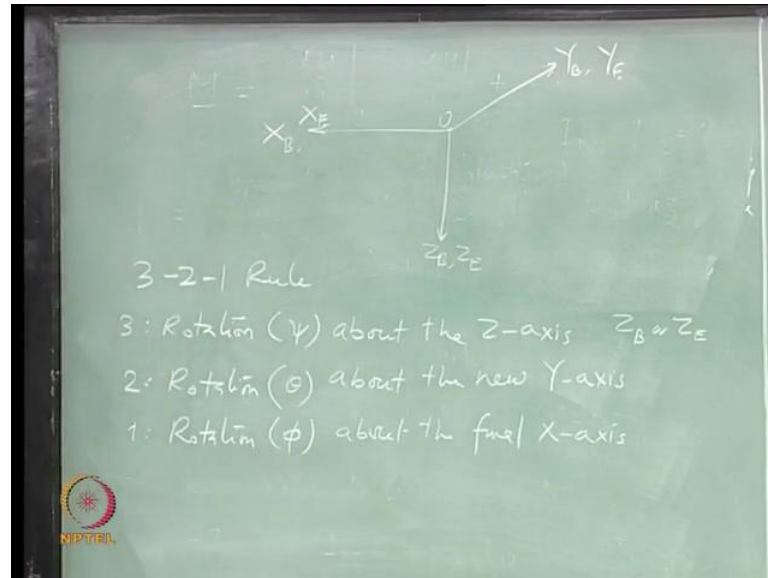 M =
Y_B, Y_E
+
X_B, X_E
O
Z_B, Z_E
3-2-1 Rule
3: Rotation (ψ) about the Z-axis Z_B or Z_E
2: Rotation (θ) about the new Y-axis
1: Rotation (φ) about the final X-axis
NPTEL